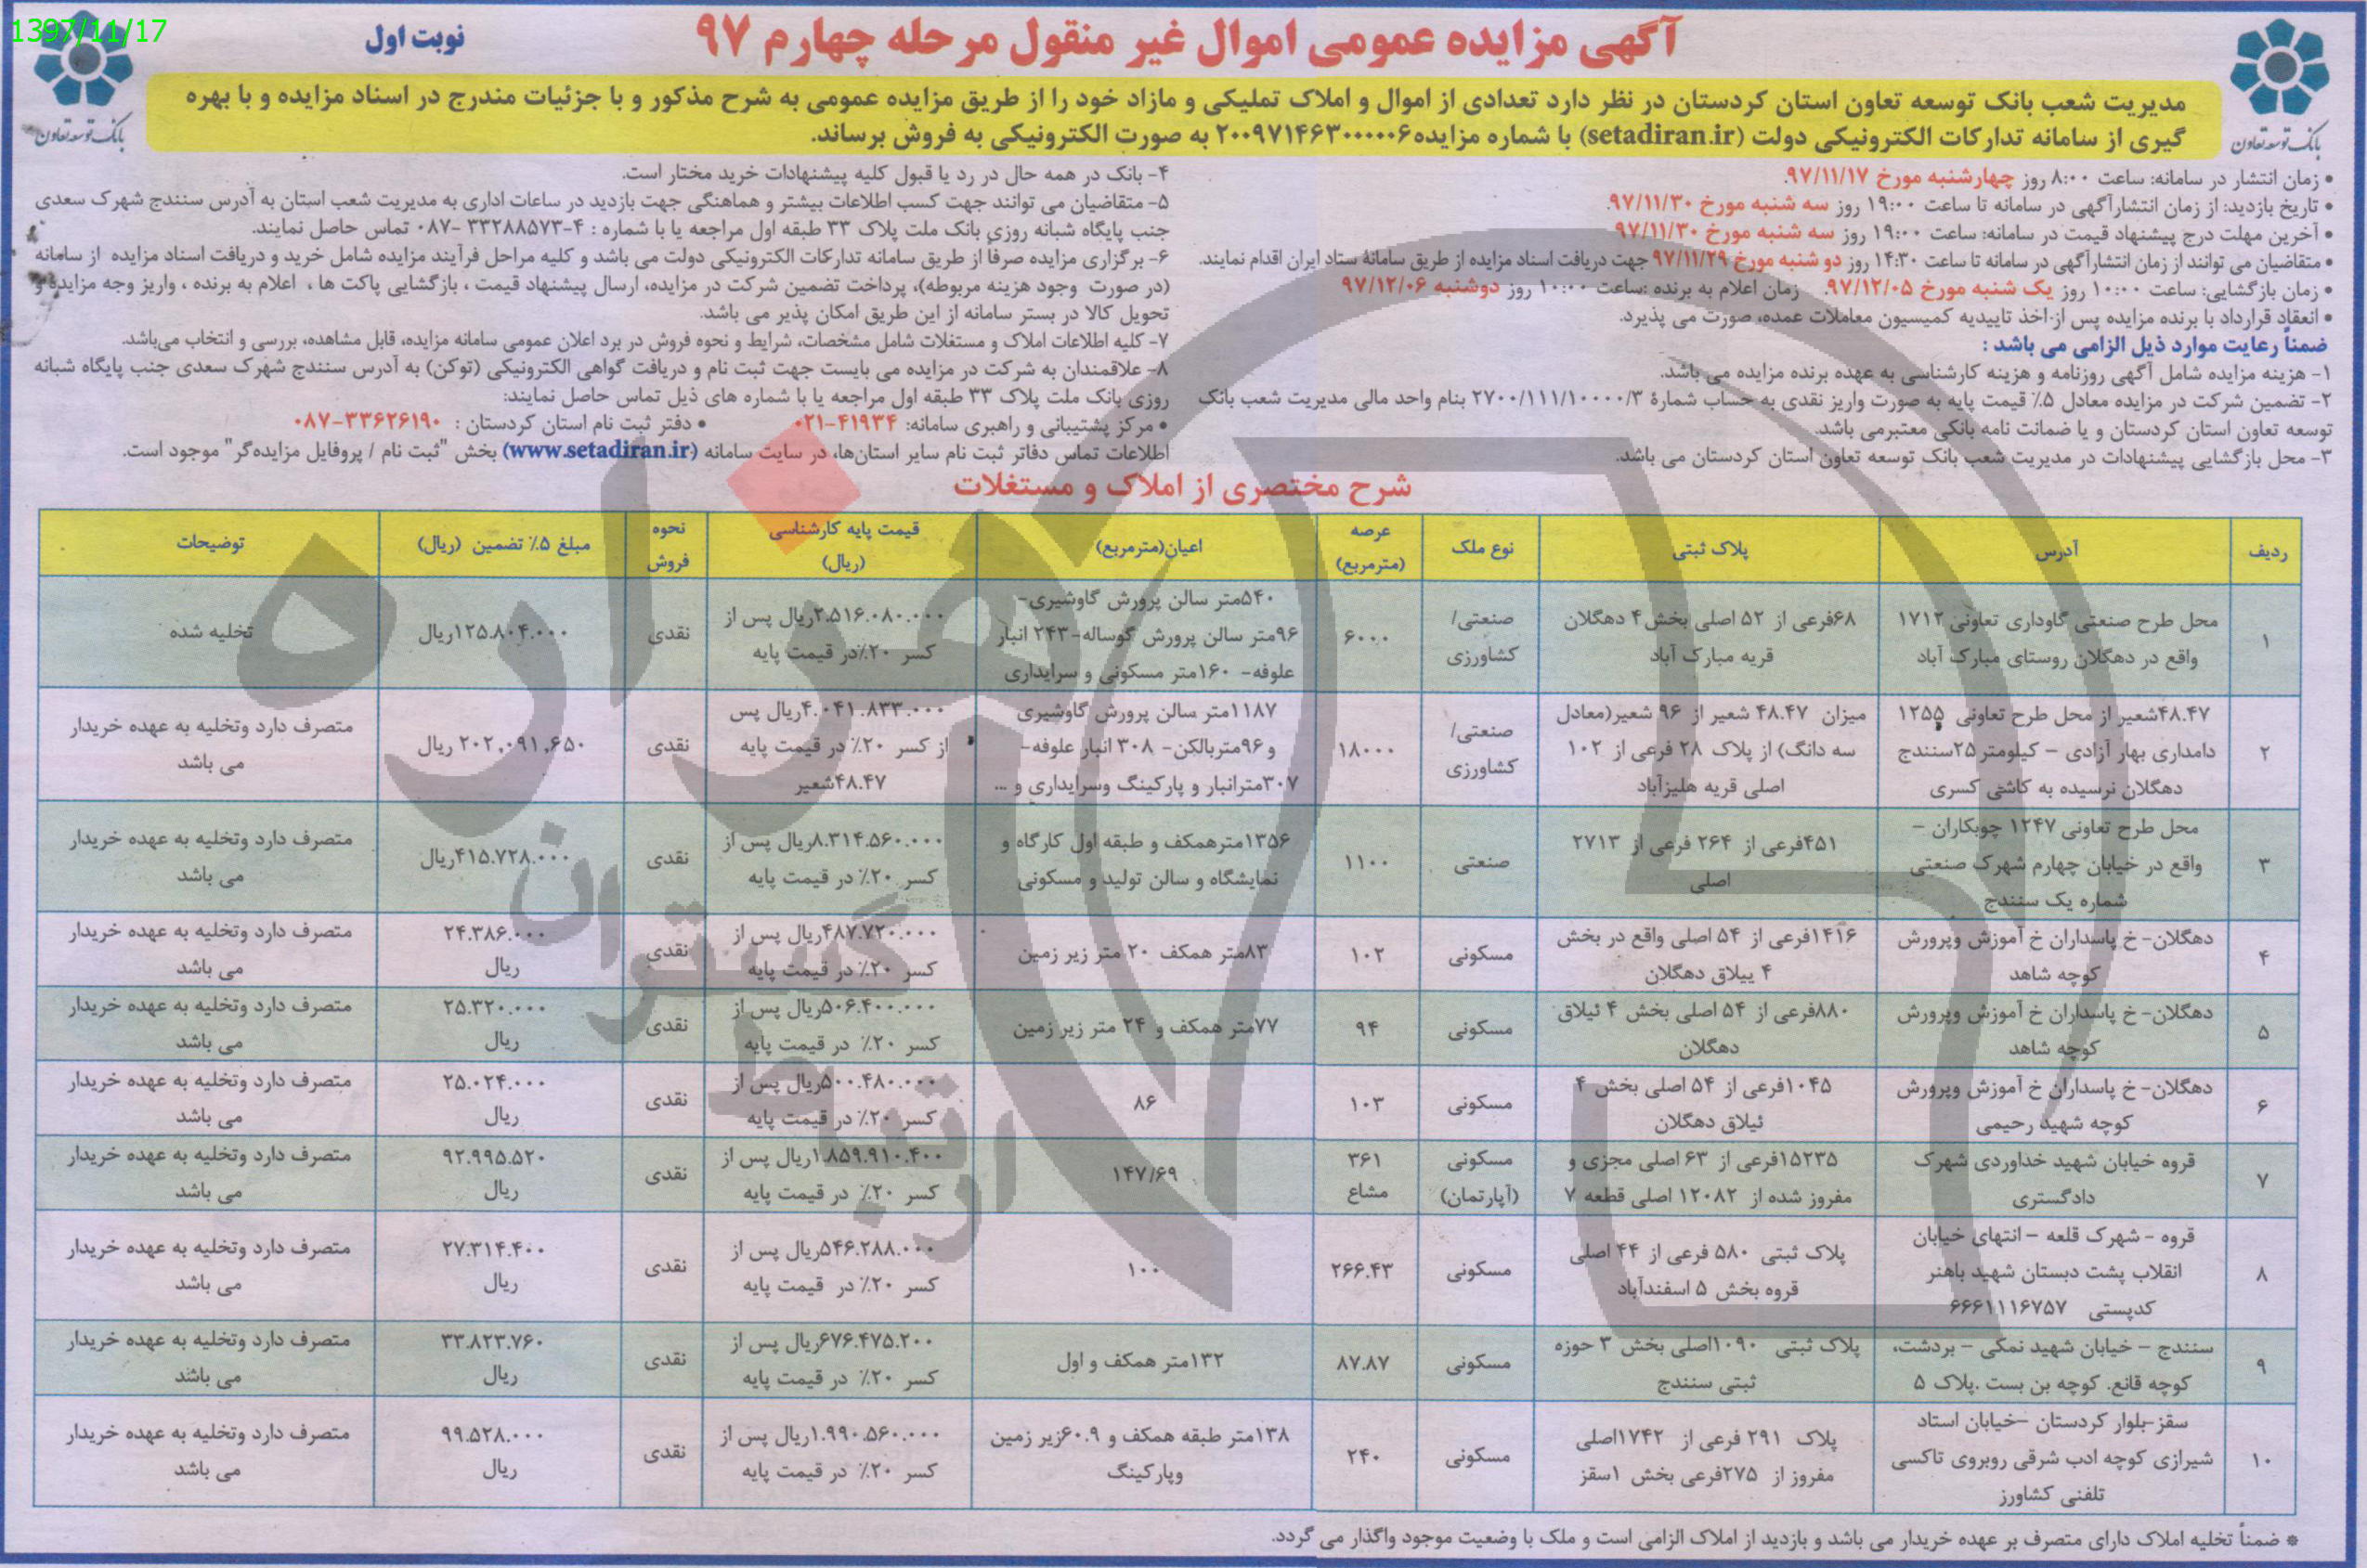 1397/11/17
آگهی مزایده عمومی اموال غیر منقول مرحله چهارم ۹۷
نوبت اول
بانک توسعه تعاون
بانک توسعه تعاون
مدیریت شعب بانک توسعه تعاون استان کردستان در نظر دارد تعدادی از اموال و املاک تملیکی و مازاد خود را از طریق مزایده عمومی به شرح مذکور و با جزئیات مندرج در اسناد مزایده و با بهره
گیری از سامانه تدارکات الکترونیکی دولت (setadiran.ir) با شماره مزایده ۲۰۰۹۷۱۴۶۳۰۰۰۰۰۶ به صورت الکترونیکی به فروش برساند.
• زمان انتشار در سامانه: ساعت ۸:۰۰ روز چهارشنبه مورخ ۹۷/۱۱/۱۷.
• تاریخ بازدید: از زمان انتشارآگهی در سامانه تا ساعت ۱۹:۰۰ روز سه شنبه مورخ ۹۷/۱۱/۳۰.
• آخرین مهلت درج پیشنهاد قیمت در سامانه: ساعت ۱۹:۰۰ روز سه شنبه مورخ ۹۷/۱۱/۳۰
• متقاضیان می توانند از زمان انتشارآگهی در سامانه تا ساعت ۱۴:۳۰ روز دو شنبه مورخ ۹۷/۱۱/۲۹ جهت دریافت اسناد مزایده از طریق سامانهٔ ستاد ایران اقدام نمایند.
• زمان بازگشایی: ساعت ۱۰:۰۰ روز یک شنبه مورخ ۹۷/۱۲/۰۵. زمان اعلام به برنده :ساعت ۱۰:۰۰ روز دوشنبه ۹۷/۱۲/۰۶
• انعقاد قرارداد با برنده مزایده پس از اخذ تاییدیه کمیسیون معاملات عمده، صورت می پذیرد.
ضمناً رعایت موارد ذیل الزامی می باشد :
۱- هزینه مزایده شامل آگهی روزنامه و هزینه کارشناسی به عهده برنده مزایده می باشد.
۲- تضمین شرکت در مزایده معادل ۵٪ قیمت پایه به صورت واریز نقدی به حساب شمارهٔ ۲۷۰۰/۱۱۱/۱۰۰۰۰/۳ بنام واحد مالی مدیریت شعب بانک
توسعه تعاون استان کردستان و یا ضمانت نامه بانکی معتبرمی باشد.
۳- محل بازگشایی پیشنهادات در مدیریت شعب بانک توسعه تعاون استان کردستان می باشد.
۴- بانک در همه حال در رد یا قبول کلیه پیشنهادات خرید مختار است.
۵- متقاضیان می توانند جهت کسب اطلاعات بیشتر و هماهنگی جهت بازدید در ساعات اداری به مدیریت شعب استان به آدرس سنندج شهرک سعدی
جنب پایگاه شبانه روزی بانک ملت پلاک ۳۳ طبقه اول مراجعه یا با شماره : ۴-۳۳۲۸۸۵۷۳ -۰۸۷ تماس حاصل نمایند.
۶- برگزاری مزایده صرفاً از طریق سامانه تدارکات الکترونیکی دولت می باشد و کلیه مراحل فرآیند مزایده شامل خرید و دریافت اسناد مزایده از سامانه
(در صورت وجود هزینه مربوطه)، پرداخت تضمین شرکت در مزایده، ارسال پیشنهاد قیمت ، بازگشایی پاکت ها ، اعلام به برنده ، واریز وجه مزایده و
تحویل کالا در بستر سامانه از این طریق امکان پذیر می باشد.
۷- کلیه اطلاعات املاک و مستغلات شامل مشخصات، شرایط و نحوه فروش در برد اعلان عمومی سامانه مزایده، قابل مشاهده، بررسی و انتخاب می‌باشد.
۸- علاقمندان به شرکت در مزایده می بایست جهت ثبت نام و دریافت گواهی الکترونیکی (توکن) به آدرس سنندج شهرک سعدی جنب پایگاه شبانه
روزی بانک ملت پلاک ۳۳ طبقه اول مراجعه یا با شماره های ذیل تماس حاصل نمایند:
• مرکز پشتیبانی و راهبری سامانه: ۴۱۹۳۴-۰۲۱ • دفتر ثبت نام استان کردستان : ۳۳۶۲۶۱۹۰-۰۸۷
اطلاعات تماس دفاتر ثبت نام سایر استان‌ها، در سایت سامانه (www.setadiran.ir) بخش "ثبت نام / پروفایل مزایده‌گر" موجود است.
شرح مختصری از املاک و مستغلات
ردیف آدرس پلاک ثبتی نوع ملک عرصه (مترمربع) اعیان(مترمربع) قیمت پایه کارشناسی (ریال) نحوه فروش مبلغ ۵٪ تضمین (ریال) توضیحات
۱ محل طرح صنعتی گاوداری تعاونی ۱۷۱۲ واقع در دهگلان روستای مبارک آباد ۶۸فرعی از ۵۲ اصلی بخش ۴ دهگلان قریه مبارک آباد صنعتی/ کشاورزی ۶۰۰۰ ۵۴۰متر سالن پرورش گاوشیری- ۹۶متر سالن پرورش گوساله-۲۴۳ انبار علوفه- ۱۶۰متر مسکونی و سرایداری ۲.۵۱۶.۰۸۰.۰۰۰ریال پس از کسر ۲۰٪در قیمت پایه نقدی ۱۲۵.۸۰۴.۰۰۰ریال تخلیه شده
۲ ۴۸.۴۷شعیر از محل طرح تعاونی ۱۲۵۵ دامداری بهار آزادی – کیلومتر۲۵سنندج دهگلان نرسیده به کاشی کسری میزان ۴۸.۴۷ شعیر از ۹۶ شعیر(معادل سه دانگ) از پلاک ۲۸ فرعی از ۱۰۲ اصلی قریه هلیزآباد صنعتی/ کشاورزی ۱۸۰۰۰ ۱۱۸۷متر سالن پرورش گاوشیری و ۹۶متربالکن- ۳۰۸ انبار علوفه- ۳۰۷مترانبار و پارکینگ وسرایداری و ... ۴.۰۴۱.۸۳۳.۰۰۰ریال پس از کسر ۲۰٪ در قیمت پایه ۴۸.۴۷شعیر نقدی ۲۰۲,۰۹۱,۶۵۰ ریال متصرف دارد وتخلیه به عهده خریدار می باشد
۳ محل طرح تعاونی ۱۲۴۷ چوبکاران – واقع در خیابان چهارم شهرک صنعتی شماره یک سنندج ۴۵۱فرعی از ۲۶۴ فرعی از ۲۷۱۳ اصلی صنعتی ۱۱۰۰ ۱۳۵۶مترهمکف و طبقه اول کارگاه و نمایشگاه و سالن تولید و مسکونی ۸.۳۱۴.۵۶۰.۰۰۰ریال پس از کسر ۲۰٪ در قیمت پایه نقدی ۴۱۵.۷۲۸.۰۰۰ریال متصرف دارد وتخلیه به عهده خریدار می باشد
۴ دهگلان- خ پاسداران خ آموزش وپرورش کوچه شاهد ۱۴۱۶فرعی از ۵۴ اصلی واقع در بخش ۴ ییلاق دهگلان مسکونی ۱۰۲ ۸۳متر همکف ۲۰ متر زیر زمین ۴۸۷.۷۲۰.۰۰۰ریال پس از کسر ۲۰٪ در قیمت پایه نقدی ۲۴.۳۸۶.۰۰۰ ریال متصرف دارد وتخلیه به عهده خریدار می باشد
۵ دهگلان- خ پاسداران خ آموزش وپرورش کوچه شاهد ۸۸۰فرعی از ۵۴ اصلی بخش ۴ ئیلاق دهگلان مسکونی ۹۴ ۷۷متر همکف و ۲۴ متر زیر زمین ۵۰۶.۴۰۰.۰۰۰ریال پس از کسر ۲۰٪ در قیمت پایه نقدی ۲۵.۳۲۰.۰۰۰ ریال متصرف دارد وتخلیه به عهده خریدار می باشد
۶ دهگلان- خ پاسداران خ آموزش وپرورش کوچه شهید رحیمی ۱۰۴۵فرعی از ۵۴ اصلی بخش ۴ ئیلاق دهگلان مسکونی ۱۰۳ ۸۶ ۵۰۰.۴۸۰.۰۰۰ریال پس از کسر ۲۰٪ در قیمت پایه نقدی ۲۵.۰۲۴.۰۰۰ ریال متصرف دارد وتخلیه به عهده خریدار می باشد
۷ قروه خیابان شهید خداوردی شهرک دادگستری ۱۵۲۳۵فرعی از ۶۳ اصلی مجزی و مفروز شده از ۱۲۰۸۲ اصلی قطعه ۷ مسکونی (آپارتمان) ۳۶۱ مشاع ۱۴۷/۶۹ ۱.۸۵۹.۹۱۰.۴۰۰ریال پس از کسر ۲۰٪ در قیمت پایه نقدی ۹۲.۹۹۵.۵۲۰ ریال متصرف دارد وتخلیه به عهده خریدار می باشد
۸ قروه - شهرک قلعه – انتهای خیابان انقلاب پشت دبستان شهید باهنر کدپستی ۶۶۶۱۱۱۶۷۵۷ پلاک ثبتی ۵۸۰ فرعی از ۴۴ اصلی قروه بخش ۵ اسفندآباد مسکونی ۲۶۶.۴۳ ۱۰۰ ۵۴۶.۲۸۸.۰۰۰ریال پس از کسر ۲۰٪ در قیمت پایه نقدی ۲۷.۳۱۴.۴۰۰ ریال متصرف دارد وتخلیه به عهده خریدار می باشد
۹ سنندج – خیابان شهید نمکی – بردشت، کوچه قانع. کوچه بن بست .پلاک ۵ پلاک ثبتی ۱۰۹۰اصلی بخش ۳ حوزه ثبتی سنندج مسکونی ۸۷.۸۷ ۱۳۲متر همکف و اول ۶۷۶.۴۷۵.۲۰۰ریال پس از کسر ۲۰٪ در قیمت پایه نقدی ۳۳.۸۲۳.۷۶۰ ریال متصرف دارد وتخلیه به عهده خریدار می باشد
۱۰ سقز-بلوار کردستان –خیابان استاد شیرازی کوچه ادب شرقی روبروی تاکسی تلفنی کشاورز پلاک ۲۹۱ فرعی از ۱۷۴۲اصلی مفروز از ۲۷۵فرعی بخش ۱سقز مسکونی ۲۴۰ ۱۳۸متر طبقه همکف و ۶۰.۹زیر زمین وپارکینگ ۱.۹۹۰.۵۶۰.۰۰۰ریال پس از کسر ۲۰٪ در قیمت پایه نقدی ۹۹.۵۲۸.۰۰۰ ریال متصرف دارد وتخلیه به عهده خریدار می باشد
* ضمناً تخلیه املاک دارای متصرف بر عهده خریدار می باشد و بازدید از املاک الزامی است و ملک با وضعیت موجود واگذار می گردد.
هزاره
ارتباط گستران